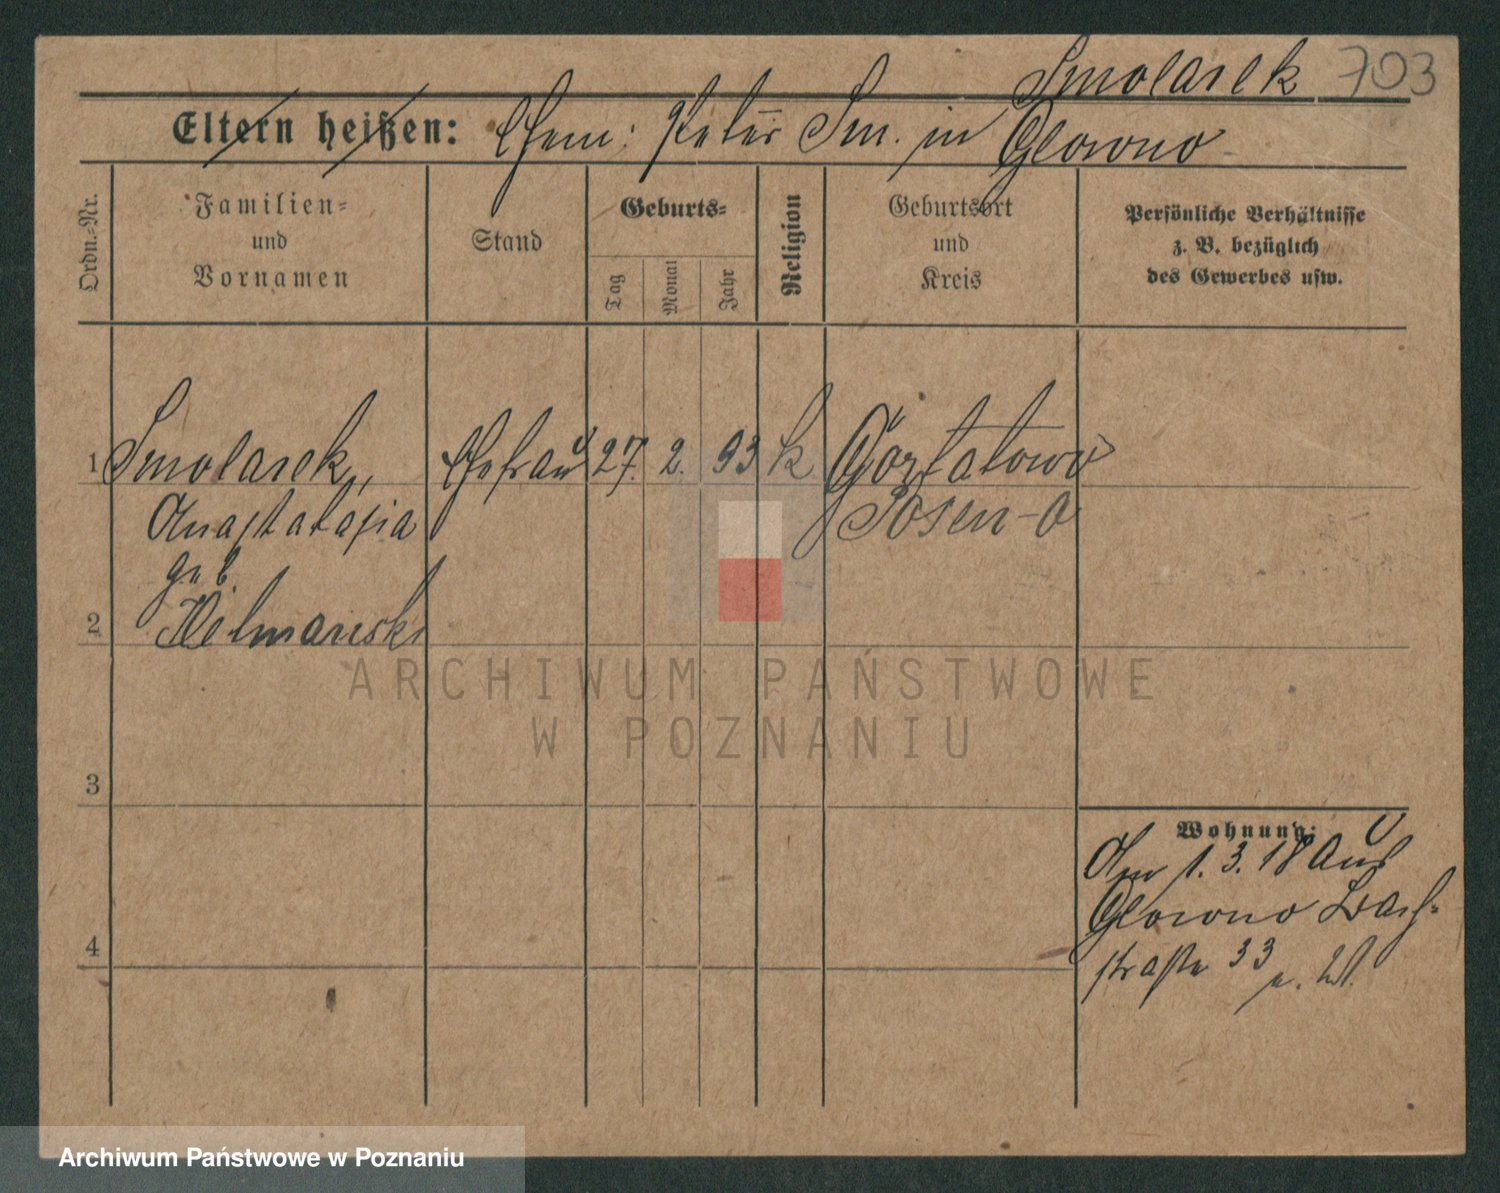 Smolarek 703
Eltern heißen: Ehem: Peter Sm. in Glowno
Ordn.-Nr.
Familien-
und
Vornamen
Stand
Geburts-
Tag
Monat
Jahr
Religion
Geburtsort
und
Kreis
Persönliche Verhältnisse
z. B. bezüglich
des Gewerbes usw.
1 Smolarek, Ehefrau 27. 2. 93 k Gortatowo
Posen-O
geb.
2
3
4
Wohnung:
Am 1.3.18 aus
Glowno
straße 33
ARCHIWUM PAŃSTWOWE
W POZNANIU
Archiwum Państwowe w Poznaniu